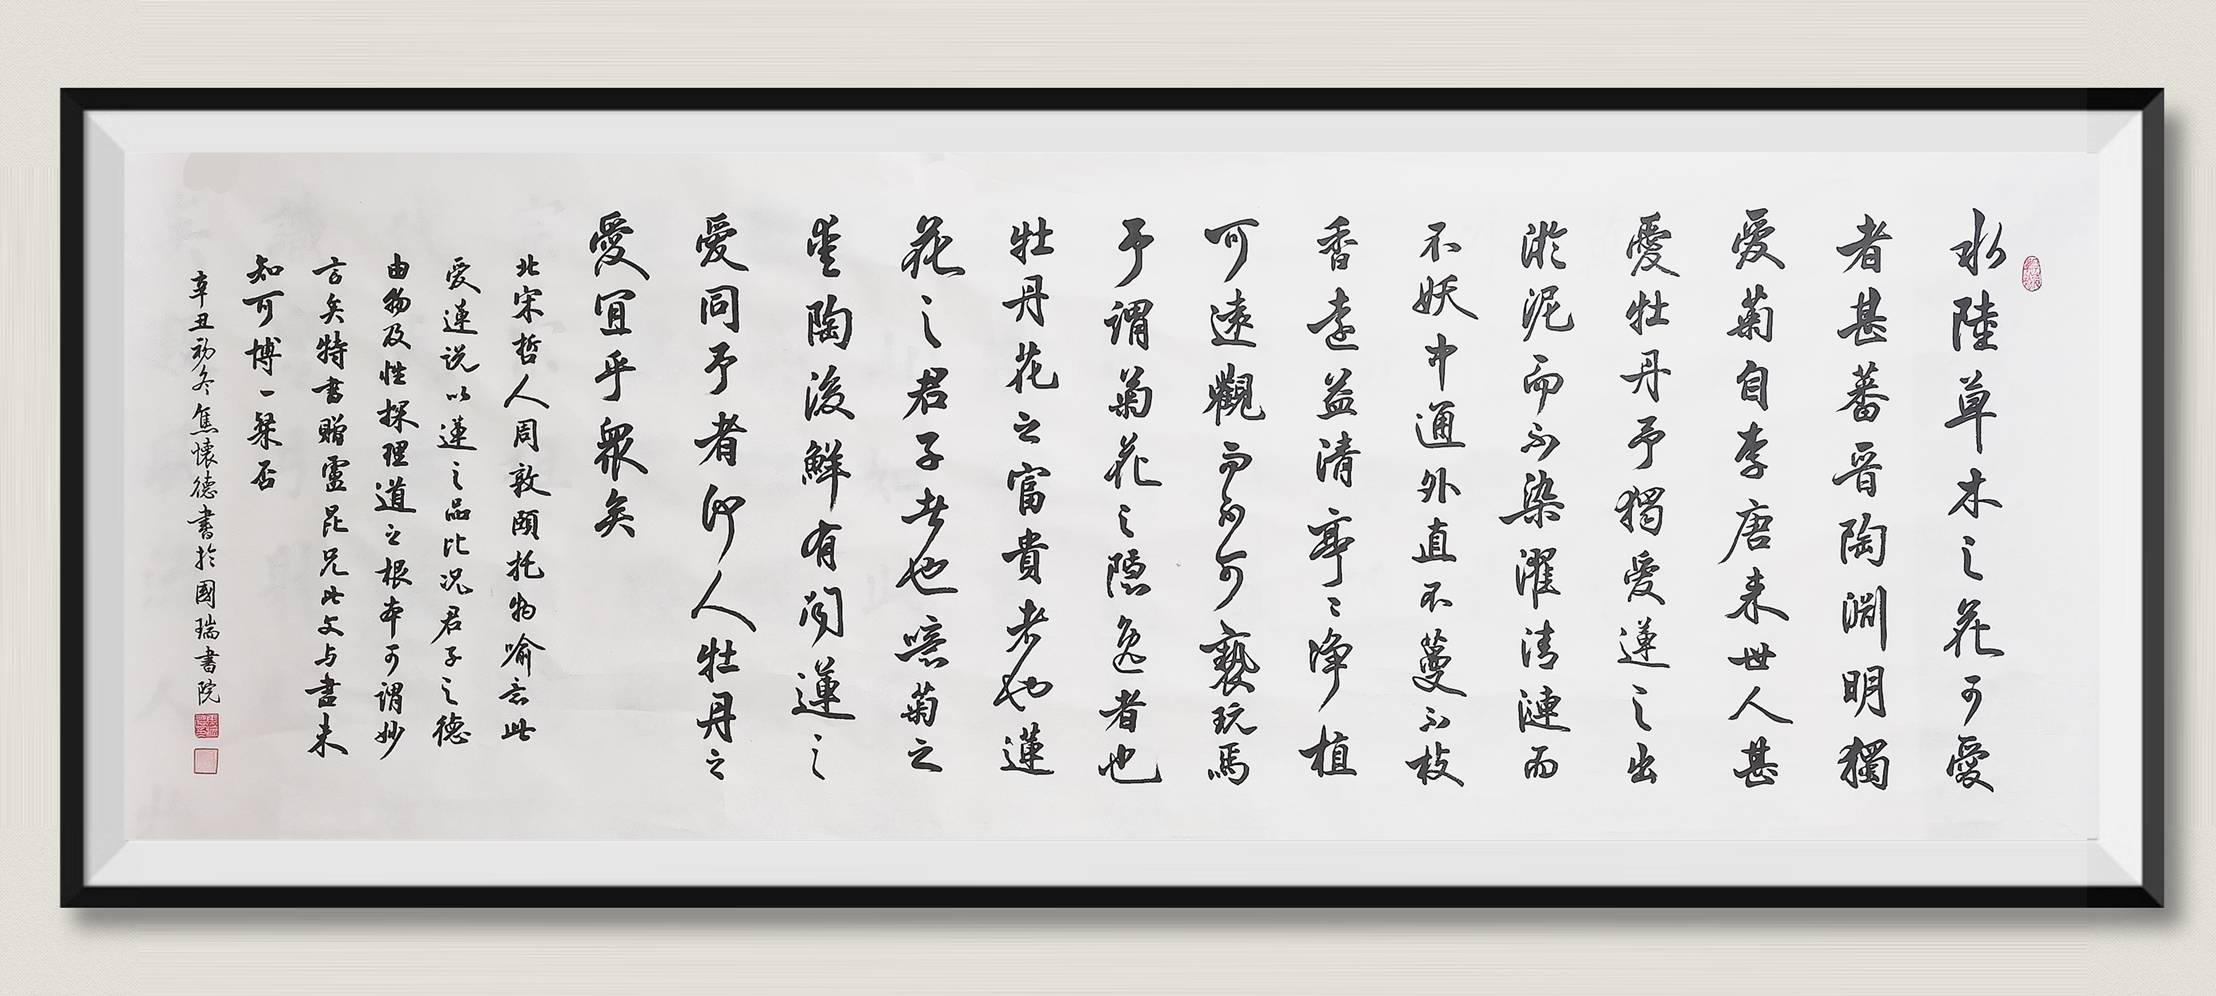 水陸草木之花可愛
者甚蕃晉陶渊明獨
爱菊自李唐来世人甚
愛牡丹予獨爱蓮之出
淤泥而不染濯清漣而
不妖中通外直不蔓不枝
香遠益清亭〻净植
可遠觀而不可亵玩焉
予谓菊花之隐逸者也
牡丹花之富貴者也蓮
花之君子者也噫菊之
爱陶後鮮有闻蓮之
爱同予者何人牡丹之
愛宜乎眾矣
北宋哲人周敦頤托物喻言此
爱蓮说以蓮之品比况君子之德
由物及性探理道之根本可謂妙
言矣特書贈靈昆兄此文与書未
知可博一粲否
辛丑初冬焦懷德書於國瑞書院